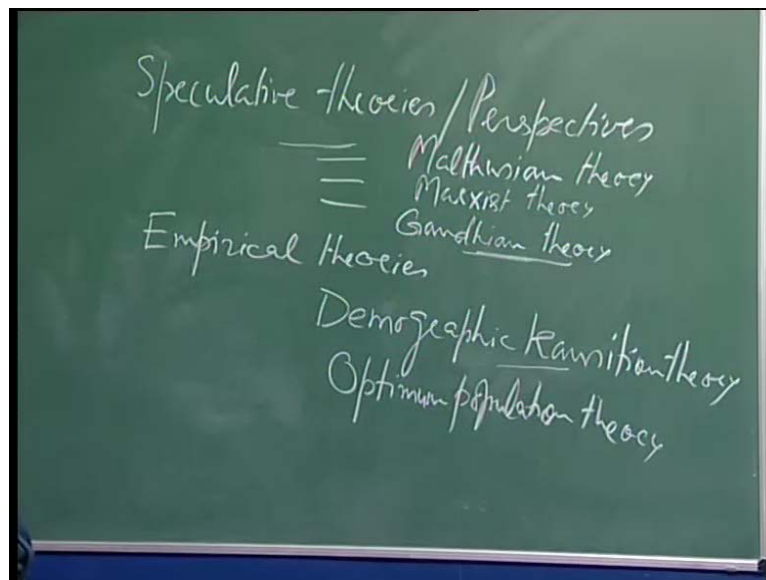 Speculative theories/Perspectives
Malthusian theory
Marxist theory
Gandhian theory
Empirical theories
Demographic transition theory
Optimum population theory